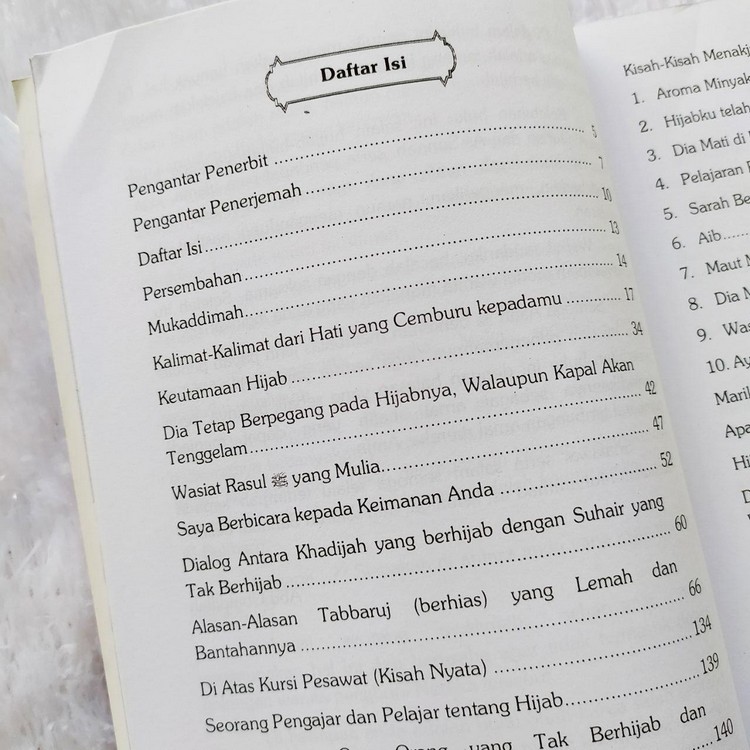 Daftar Isi
Pengantar Penerbit ..... 5
Pengantar Penerjemah ..... 7
Daftar Isi ..... 10
Persembahan ..... 13
Mukaddimah ..... 14
Kalimat-Kalimat dari Hati yang Cemburu kepadamu ..... 17
Keutamaan Hijab ..... 34
Dia Tetap Berpegang pada Hijabnya, Walaupun Kapal Akan
Tenggelam ..... 42
Wasiat Rasul ﷺ yang Mulia ..... 47
Saya Berbicara kepada Keimanan Anda ..... 52
Dialog Antara Khadijah yang berhijab dengan Suhair yang
Tak Berhijab ..... 60
Alasan-Alasan Tabbaruj (berhias) yang Lemah dan
Bantahannya ..... 66
Di Atas Kursi Pesawat (Kisah Nyata) ..... 134
Seorang Pengajar dan Pelajar tentang Hijab ..... 139
yang Tak Berhijab dan
140
Kisah-Kisah
1. Aroma
2. Hijabku telah
3. Dia Mati di
4. Pelajaran
5. Sarah
6. Aib.....
7. Maut
8. Dia
9.
10.